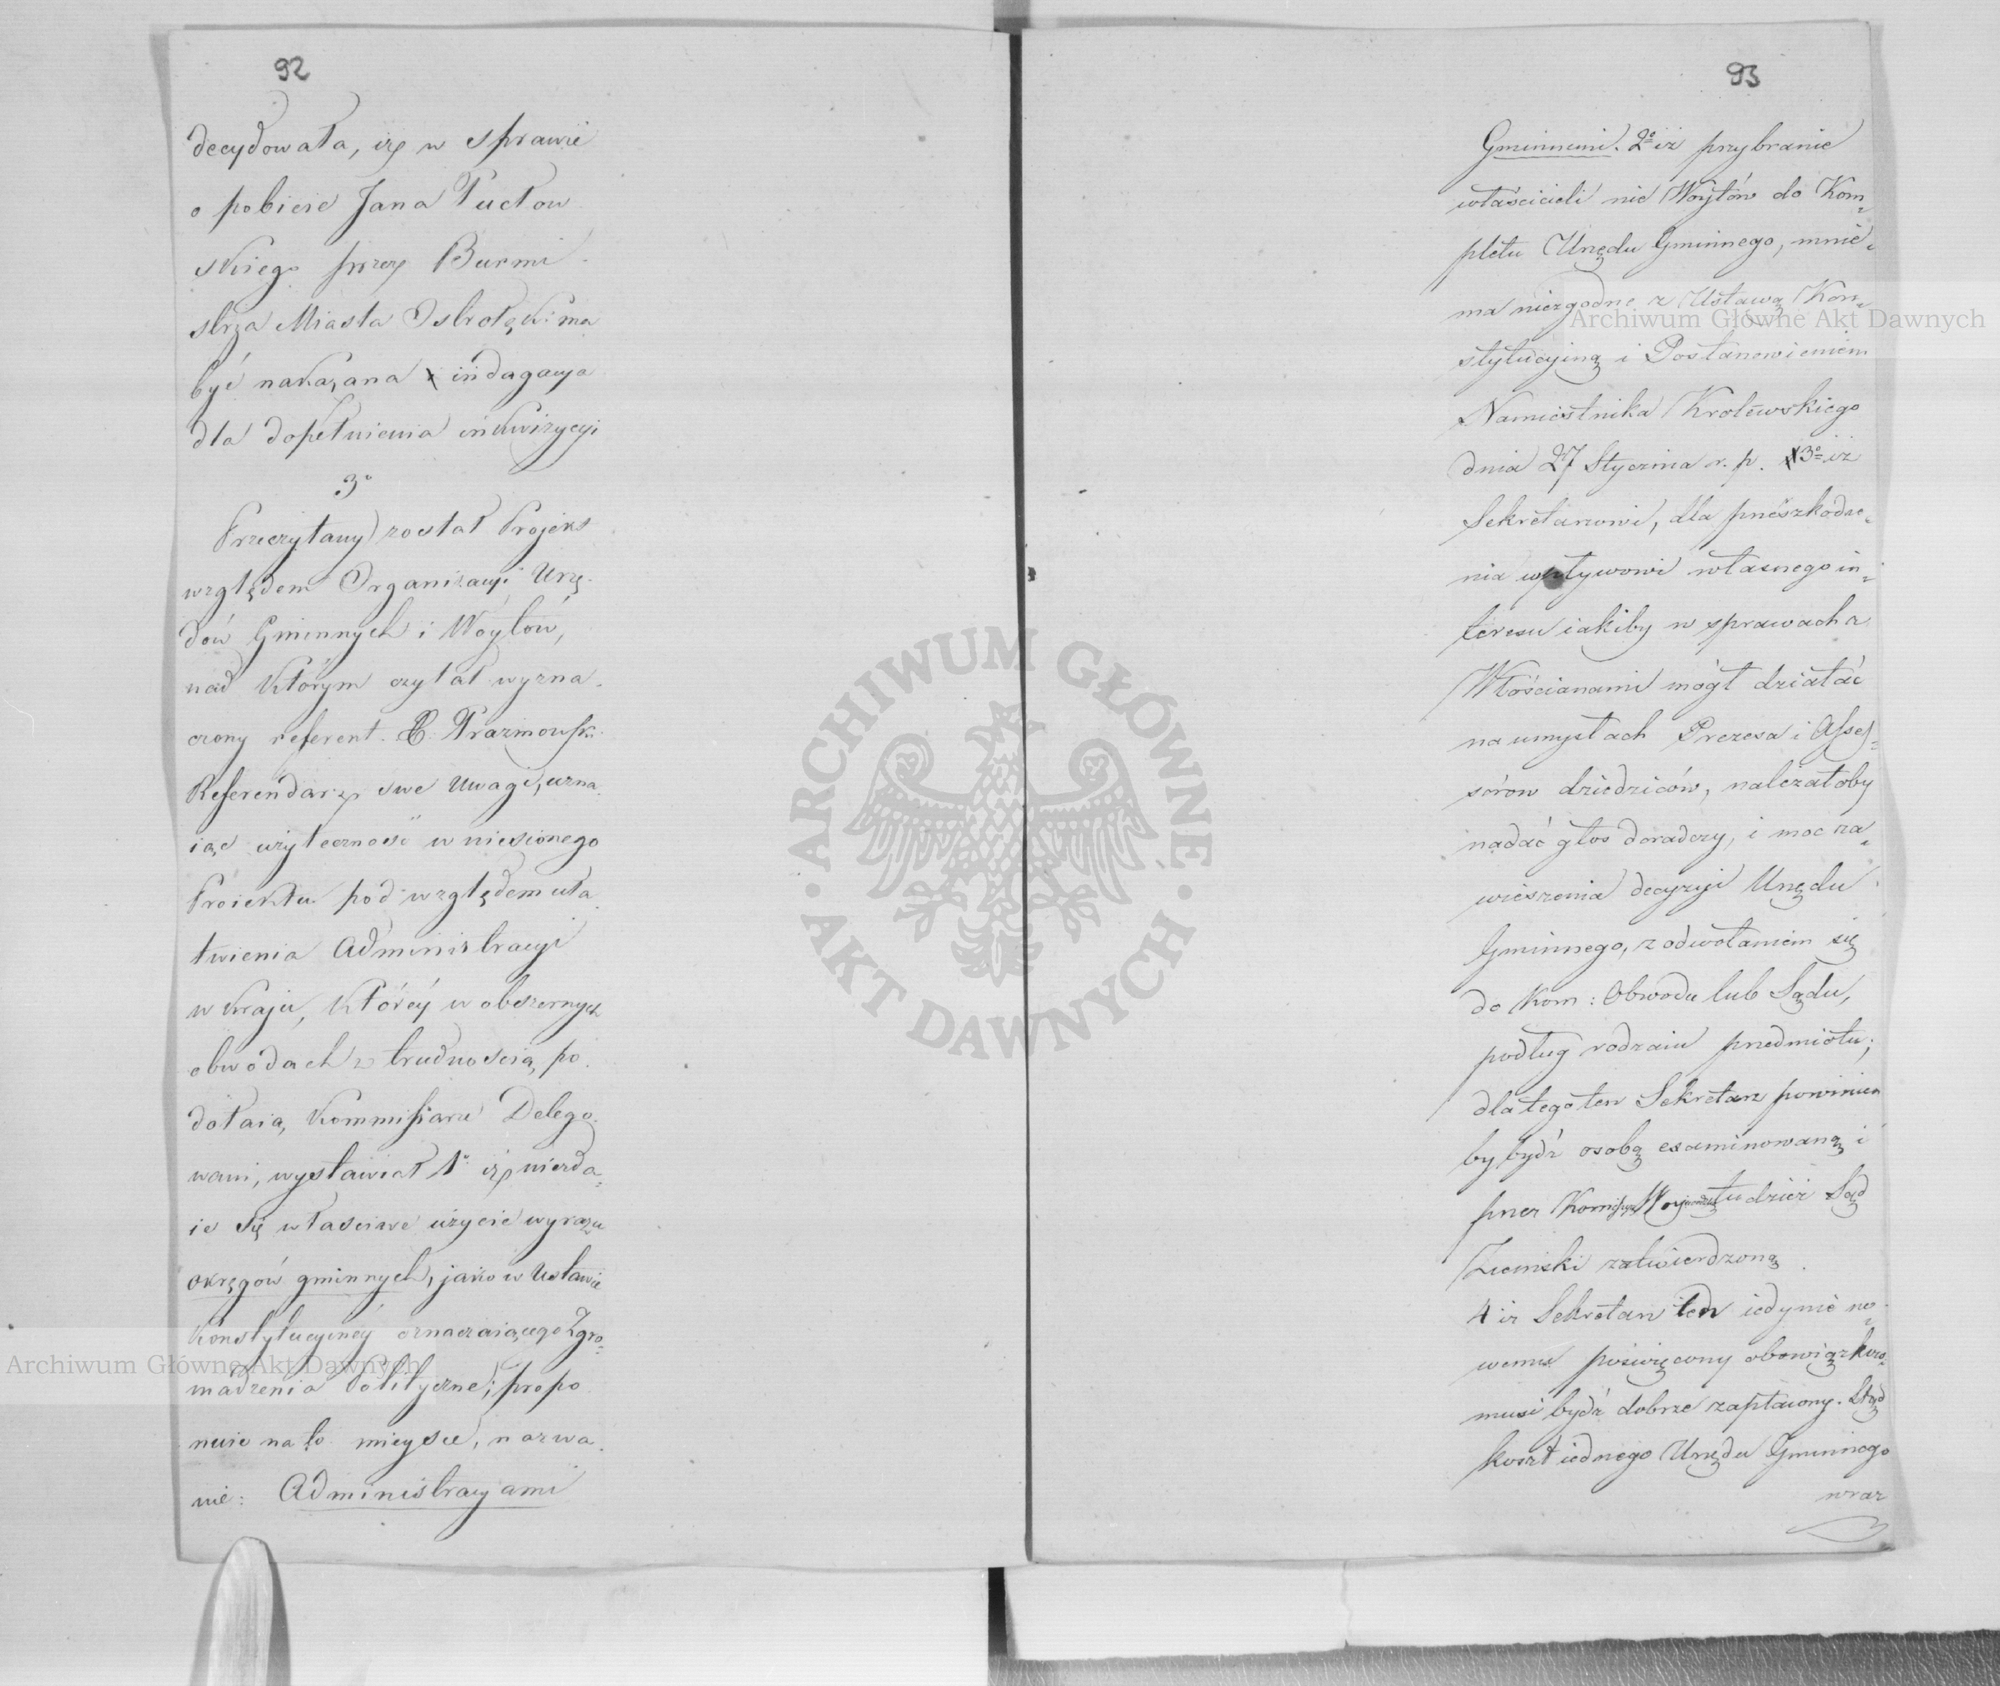 92
decydowała, iż w sprawie
o pobicie Jana Puctow
skiego przez Burmi
strza Miasta Ostrołęki ma
być nakazana indagacya
dla dopełnienia inkwizycyi
3o
Przeczytany został Projekt
względem Organizacyi Urzę-
dów Gminnych i Wóytów,
nad którym czytał wyzna-
czony referent Prazmowski
Referendarz swe Uwagi, uzna-
iąc użyteczność wniesionego
Proiektu pod względem uła
twienia Administracyi
w kraju, któréy w obszernych
obwodach z trudnością po
dołaią Kommissarze Delego-
wani, wystawiał 1o iż niezda-
ie się właściwe użycie wyrazu
okręgów gminnych, jako w Ustawie
Konstytucyinéy oznaczaiącego Zgro-
madzenia Polityczne; propo
nuie na to mieysce, nazwa-
nie: Administracyami
93
Gminnemi. 2o iż przybranie
właścicieli nie Woytów do Kom-
pletu Urzędu Gminnego, mnie-
ma niezgodne z Ustawą Kon-
stytucyiną i Postanowieniem
Namiestnika Krolewskiego
dnia 27 Stycznia r. p. 3o iż
Sekretarzowi, dla przeszkodze-
nia wpływowi własnego in-
teresu iakiby w sprawach z
Włościanami mógł działać
na umysłach Prezesa i Asses-
sorow dziedziców, należałoby
nadać głos doradczy, i moc za-
wieszenia decyzyi Urzędu
Gminnego, z odwołaniem się
do Kom: Obwodu lub Sądu,
podług rodzaiu przedmiotu;
dla tego ten Sekretarz powinien
by bydź osobą examinowaną i
przez Kommissyą Woyewódzką tudzież Sąd
Ziemski zatwierdzoną
4 iż Sekretarz ten iedynie no-
wemu poświęcony obowiązkowi
musi bydź dobrze zapłacony. Ztąd
koszt iednego Urzędu Gminnego
wraz
Archiwum Główne Akt Dawnych
Archiwum Główne Akt Dawnych
ARCHIWUM GŁÓWNE
AKT DAWNYCH